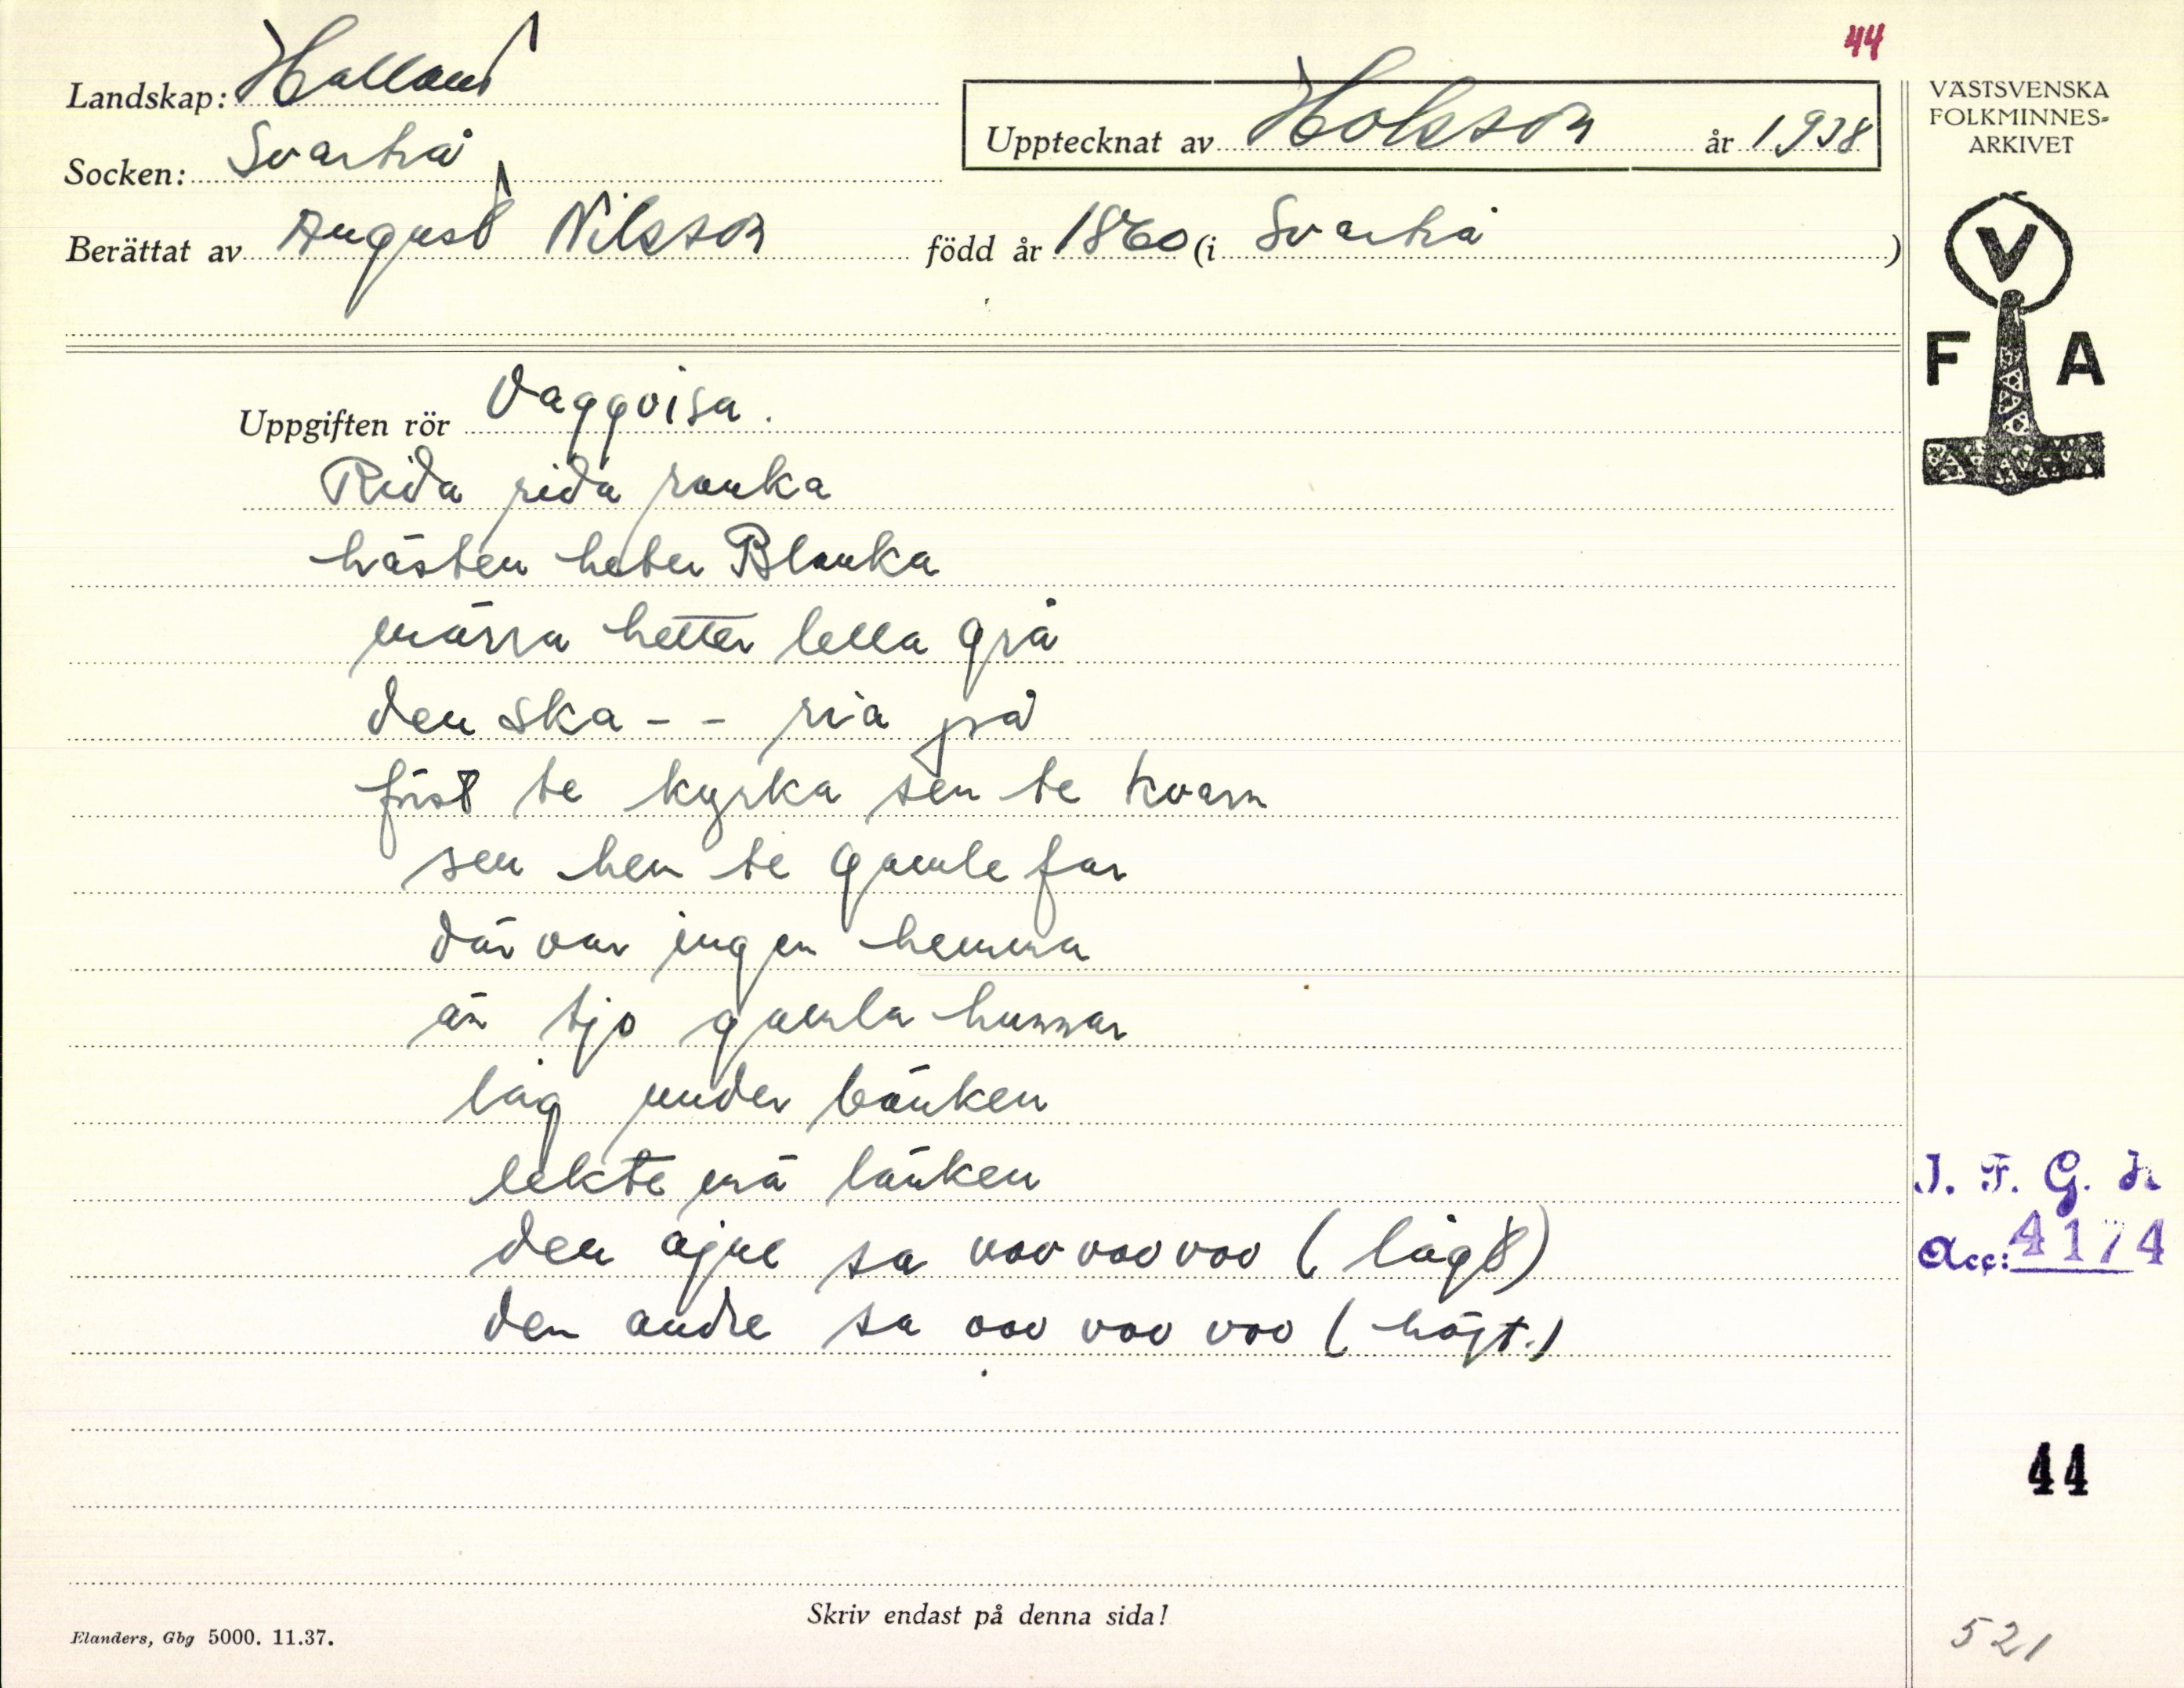 44
Landskap: Halland
Upptecknat av Holsson år 1938
Socken: Svartrå
Berättat av August Nilsson född år 1860 (i Svartrå )
VÄSTSVENSKA
FOLKMINNES-
ARKIVET
V
F A
Uppgiften rör Vaggvisa.
Rida rida ranka
hästen heter Blanka
märra hetter lella grå
den ska - - ria på
först te kyrka sen te kvarn
sen hem te gamle far
där var ingen hemma
än tjo gamla hunnar
låg under bänken
lekte mä länken
den ajne sa voo voo voo (lågt)
den andre sa ooo voo voo (högt.)
I. F. G. H
Acc: 4174
44
Skriv endast på denna sida!
Elanders, Gbg 5000. 11.37.
521